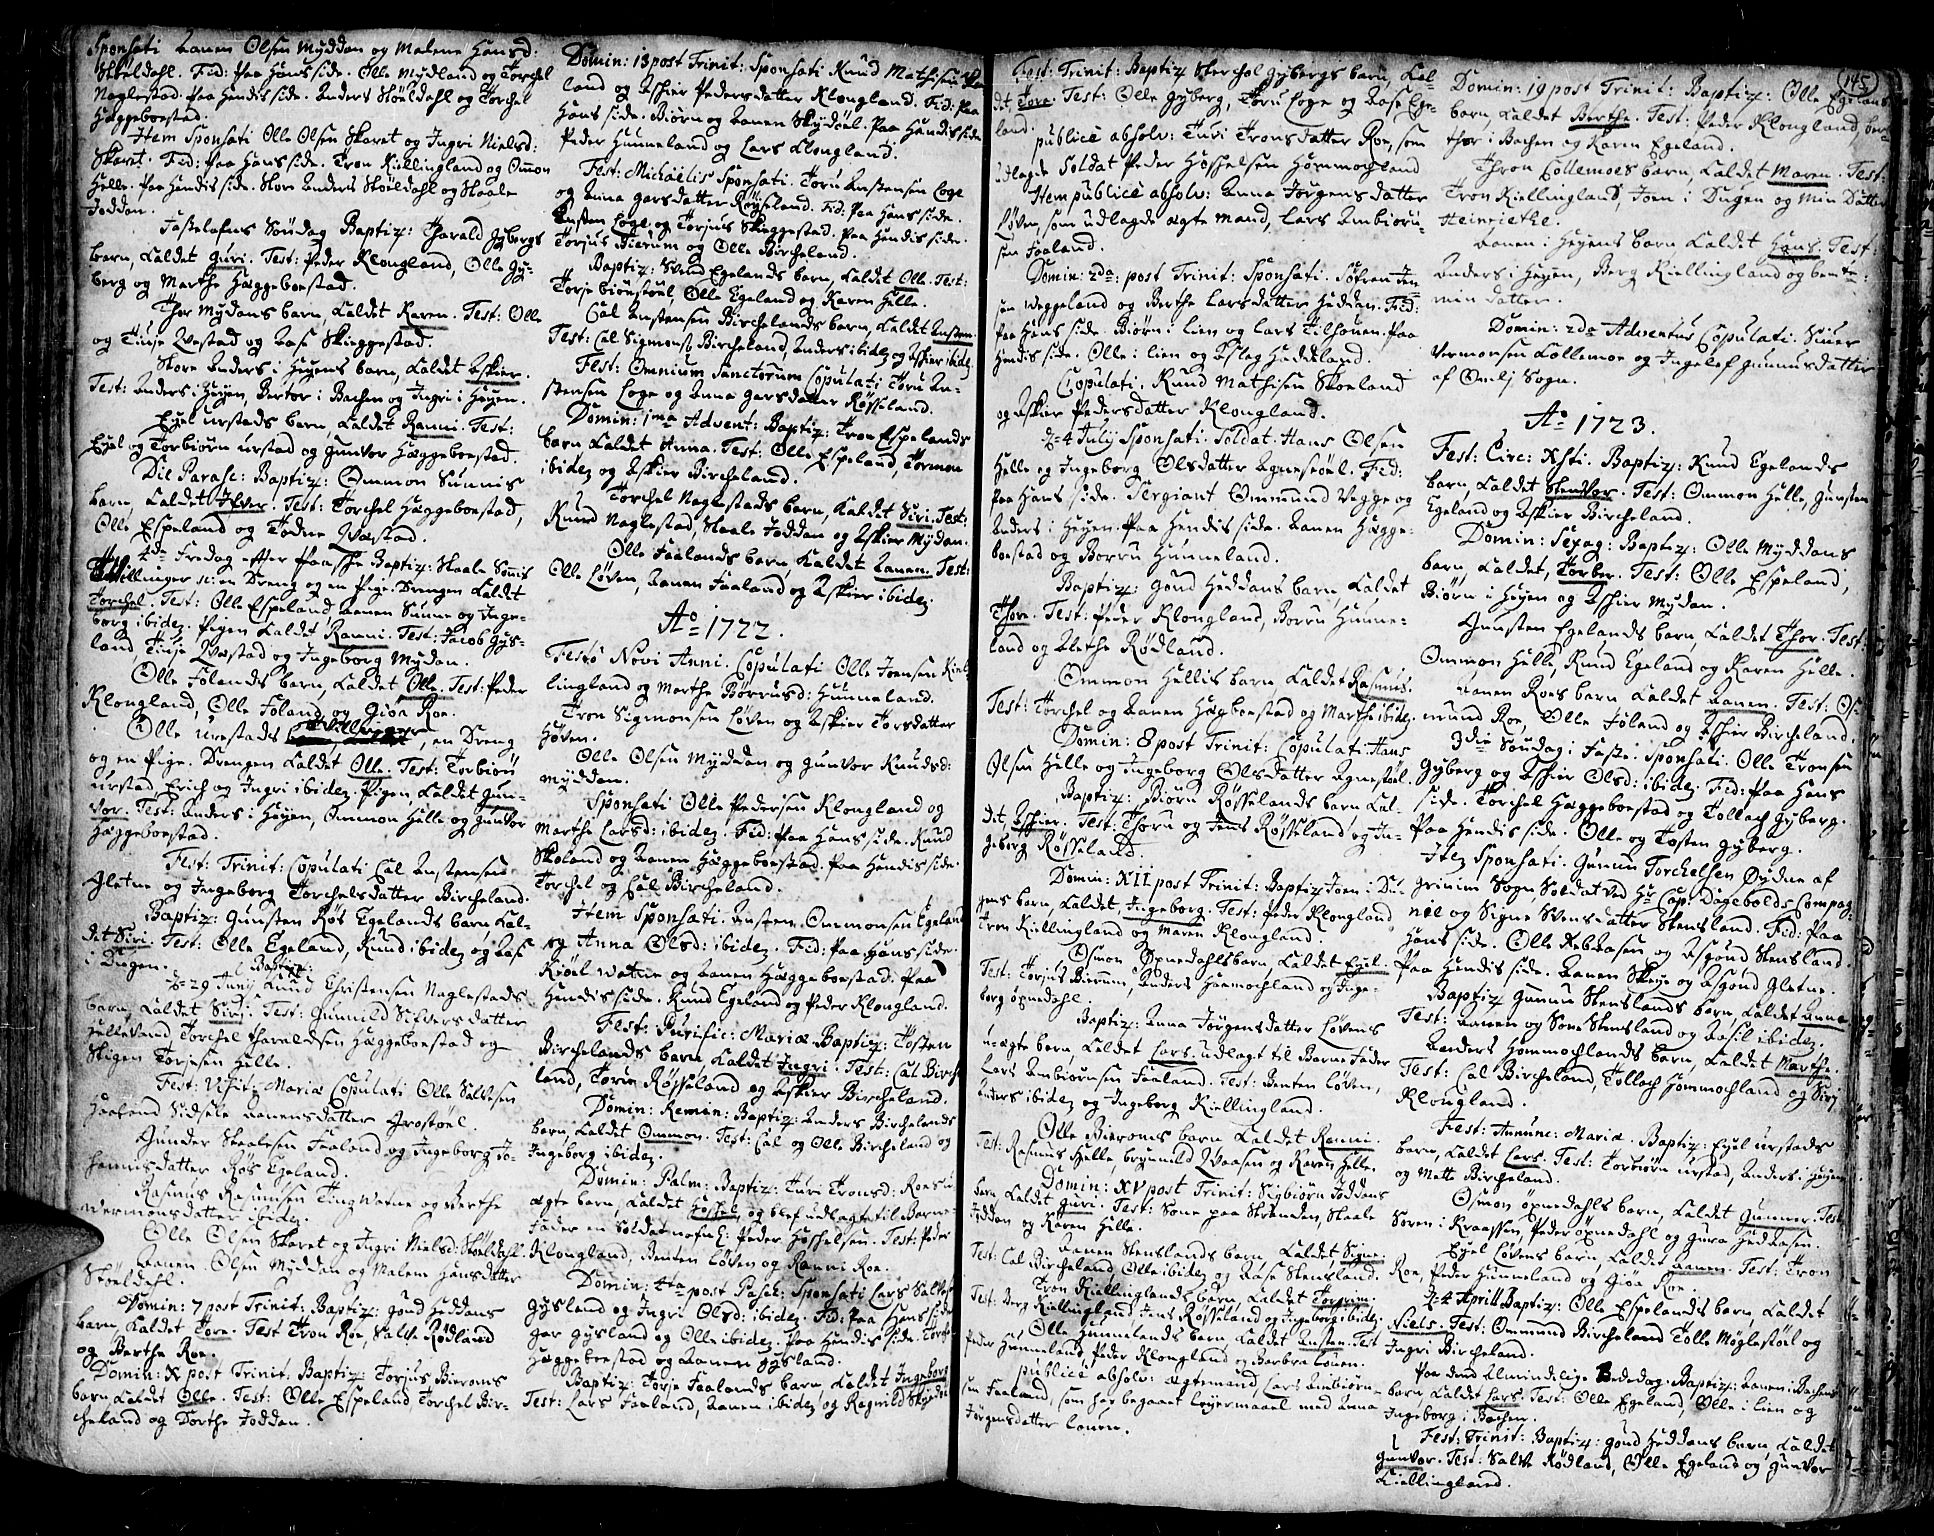 Sponsati Aanen Olsen Myddan og Malene Hansd:
Skøeldahl. Fid: Paa Hans side. Olle Mydland og Torchel
Naglestad. Paa Hendis side. Anders Skøuldahl og Torchel
Hæggeboestad.
Item Sponsati Olle Olsen Skaret og Ingri Nielsd:
Skaret. Fid: Paa Hans side. Tron Kiellingland og Ommon
Helle. Paa Hendis side. Store Anders Skøuldahl og Staale
Joddan.
Fastelafens Søndag Baptiz: Tharald Gybergs
barn, Caldet Guri. Test: Peder Klongland, Olle Gy-
berg og Marthe Hæggeboestad.
Thor Mydans barn, Caldet Karen. Test: Olle
og Aase Skieggestad.
Store Anders i Heyens barn, Caldet Askier.
Test: Anders i Heyen, Bertor i Bachen og Ingri i Heyen.
Eyel Urstads barn, Caldet Ranni. Test:
Eyel og Torbiørn Urstad og Gunvor Hæggeboestad.
Baptiz: Ommon Sunnis
barn, Caldet Test: Torchel Hæggeboestad,
Olle Espeland og Todne
4de Fredag efter Paasche Baptiz: Staale
Tvillinger, en Dreng og en Pige. Drengen Caldet
Torchel. Test: Olle Espeland, Aanen Sunne og Inge-
borg ibidem. Pigen Caldet Ranni. Test: Jacob Gys-
land, og Ingeborg Mydan.
Olle Fölands barn, Caldet Olle. Test: Peder
Klongland, Olle Föland og Giöa Roe.
Olle Urestads Tvillinger, en Dreng
og en Pige. Drengen Caldet Olle. Test: Torbiørn
Urstad Erich og Ingri ibidem. Pigen Caldet Gun-
vor. Test: Anders i Heyen, Ommon Helle og Gunvor
Hæggeboestad.
Fest: Trinit: Copulati Eal Anstensen
Gletne og Ingeborg Torchelsdatter Bircheland.
Baptiz: Gunsten Røs Egelands barn Cal-
det Siri. Test: Olle Egeland, Knud ibidem og Aase
i Dugen.
Baptiz:
29 Junij Knud Christensen Naglestads
barn, Caldet Siri. Test: Gunnild Silversdatter
Torchel Haraldsen Hæggeboestad og
Torjesen Helle.
Fest: Visit: Mariæ Copulati Olle Salvesen
Sidsele Aanensdatter
Gunder Staalesen Faaland og Ingeborg Jo-
hannisdatter Røs Egeland.
Rasmus Rasmusen og Berthe
Vermonsdatter ibidem.
Olle Olsen Skaret og Ingri Nielsd: Skøeldahl.
Aanen Olsen Myddan og Malene Hansdatter
Skøeldahl.
Domin: 7 post Trinit: Baptiz: Gond Heddans
barn, Caldet Tore. Test Tron Roe, Salve Rødland
og Berthe Roe.
Domin: X post Trinit. Baptiz Torjus Bieroms
barn Caldet Olle. Test: Olle Espeland, Torchel Bir-
cheland og Dorthe Joddan.
Domin: 18 post Trinit: Sponsati Knud Mathisen
land og Aschier Pedersdatter Klongland. Fid: Paa
Hans side. Biørn og Aanen Skydøel. Paa Hendis side
Peder Hunneland og Lars Klongland.
Fest: Michaëlis Sponsati. Toru Anstensen Loge
og Anna Garsdatter Røyseland. Fid: Paa Hans side.
Ansten Loge og Torjus Skieggestad. Paa Hendis side.
Torjus Bierum og Olle Bircheland.
Baptiz: Svend Egelands barn, Caldet Olle. Test:
Torje Biönstöul, Olle Egeland og Karen Helle.
Eal Anstensen Birchelands barn, Caldet Ansten.
Test: Eal Sigmons. Bircheland, Anders ibidem og Askier ibidem
Fest: Omnium Sanctorum Copulati Toru An-
stensen Loge og Anna Garsdatter Røsseland.
Domin: 1ma Advent: Baptiz: Tron Espelands
barn Caldet Anna. Test: Olle Espeland, Tormon
ibidem og Askier Bircheland.
Torchel Naglestads barn, Caldet Siri. Test:
Knud Naglestad, Staale Joddan og Askier Mydan.
Olle Faalands barn, Caldet Aanen. Test:
Olle Löven, Aanen Faaland og Askier ibidem.
Ao 1722.
Festo Novi Anni. Copulati Olle Joensen Kiel-
lingland og Marthe Börrusd: Hunneland.
Tron Sigmonsen Löven og Askier Torsdatter
Höven.
Olle Olsen Myddan og Gunvor Knudsd:
Myddan.
Sponsati Olle Pedersen Klongland og
Marthe Larsd: ibidem. Fid: Paa Hans side. Knud
Skoland og Aanen Hæggeboestad. Paa Hendis side.
Torchel og Eal Bircheland.
Item Sponsati. Ansten Ommonsen Egeland
og Anna Olsd: ibidem. Fid: Paa Hans side.
Kröel Watne og Aanen Hæggeboestad. Paa
Hendis side. Knud Egeland og Peder Klongland.
Fest: Purific: Mariæ Baptiz: Tosten
Birchelands barn, Caldet Ingri. Test: Eal Birche-
land, Toru Røsseland og Askier Bircheland.
Domin: Remin: Baptiz: Anders Birchelands
barn, Caldet Ommon. Test: Eal og Olle Bircheland og
Ingeborg ibidem.
Domin: Palm: Baptiz: Turi Tronsd: Roes u-
ægte barn, Caldet og blef udlagt til Barne-
fader en Soldat nafnl: Peder Hoskelsen. Test: Peder
Klongland, Benten Löven og Ranni Roe.
Domin: 4ta post Pasch: Sponsati Lars Salves.
Gysland og Ingri Olsd: ibidem. Fid: Paa Hans side
Gysland og Olle ibidem. Paa Hendis side. Torchel
Hæggeboestad og Aanen Gysland.
Baptiz: Torje Faalands barn, Caldet Ingeborg
Test: Lars Faaland, Aanen ibidem og Ragnild
Fest: Trinit: Baptiz Torchel Gybergs barn, Cal-
det Tore. Test: Olle Gyberg, Toru Loge og Aase Ege-
land.
publicè absolv: Turi Tronsdatter Roe, som
udlagde Soldat Peder Hoskelsen Hommogland
Item publicè absolv: Anna Jörgensdatter
Löven, som udlagde ægte Mand, Lars Anbiörn-
sen Faaland.
Domin: 2da: post Trinit: Sponsati. Søfren Jen-
sen Weggeland og Berthe Larsdatter Heddan. Fid:
Paa Hans side Biørn i Lien og Lars Tilhouen. Paa
Hendis side. Olle i Lien og Asleg Haddeland.
Copulati. Knud Mathisen Skoeland
og Askier Pedersdatter Klongland.
4 July Sponsati. Soldat Hans Olsen
Helle og Ingeborg Olsdatter Agnestøel. Fid:
Paa Hans side. Sergiant Ommund Vegge og
Anders i Heyen. Paa Hendis side. Aanen Hægge-
boestad og Borru Hunneland.
Baptiz: Gond Heddans barn, Caldet
Thore. Test: Peder Klongland, Borru Hunne-
land og Alethe Rødland.
Ommon Hellis barn Caldet Rasmus.
Test: Torchel og Aanen Hægboestad og Marthe ibidem
Domin: 8 post Trinit: Copulati. Hans
Olsen Helle og Ingeborg Olsdatter Agnestøel.
Baptiz: Biørn Røsselands barn Cal-
det, Askier. Test: Thoru og Jens Røsseland og In-
geborg Røsseland.
Domin: XII post Trinit: Baptiz Joen i Du-
gens barn, Caldet, Ingeborg. Test: Peder Klongland
Tron Kiellingland og Maren Klongland.
Osmon Opnedahls barn, Caldet Eyel.
Test: Torjus Bierum, Anders Hæmochland og Inge-
borg Opnedahl.
Baptiz: Anna Jörgensdatter Lövens
uægte barn, Caldet Lars. udlagt til Barne Fader
Lars Anbiörnsen Faaland. Test: Benten Löven,
Anders ibidem og Ingeborg Kiellingland.
Olle Bieroms barn Caldet Ranni.
Test: Rasmus Helle, Brynnild Waasen og Karen Helle.
Domin: XV post Trinit: Sigbiørn Joddans
barn Caldet Guri. Test: Sone paa Stranden, Staale
Joddan og Karen Helle.
Aanen Stenslands barn, Caldet, Signe.
Test: Eal Bircheland Olle ibidem og Aase Stensland.
Tron Kiellinglands barn, Caldet
Test: Berg Kiellingland, Jens Røsseland og Ingeborg ibidem.
Olle Hunnelands barn, Caldet Test
Peder Hunneland, Peder Klongland og Barbra Louen.
publicè absolv: Egtemand, Lars Anbiørn-
sen Faaland, som har begaaet Leyermaael med Anna
Jörgensdatter Louen.
145
Domin: 19 post Trinit: Baptiz: Olle Egelans
barn, Caldet Berthe. Test: Peder Klongland, Ber-
thor i Bachen og Karen Egeland.
Thron Collemoes barn, Caldet Maren. Test
Tron Kiellingland, Joen i Dugen og Min Datter
Heinriethe.
Aanen i Heyens barn Caldet Hans. Test:
Anders i Heyen, Berg Kiellingland og
min datter.
Domin: 2da Adventus Copulati. Siver
Vermonsen Collemoe og Ingelef Gunnusdatter
af Omlj Sogn.
Ao 1723.
Fest: Circ: Xsti. Baptiz: Knud Egelands
barn, Caldet Stenvor. Test: Ommon Helle, Gunsten
Egeland og Askier Bircheland.
Domin: Sexag: Baptiz: Olle Myddans
barn, Caldet, Torber. Test: Olle Espeland,
Biørn i Heyen og Aschier Mydan.
Gunsten Egelands barn, Caldet Thor. Test:
Ommon Helle, Knud Egeland og Karen Helle.
Aanen Roes barn Caldet Aanen. Test: Os-
mund Roe, Olle Föland og Aschier Bircheland.
3die Søndag i Faste. Sponsati. Olle Tronsen
Gyberg og Aschier Olsd: ibidem. Fid: Paa Hans
side. Torchel Hæggeboestad og Tollach Gyberg.
Paa Hendis side. Olle og Tosten Gyberg.
Item Sponsati. Gunnu Torchelsen Øydne af
Grinim Sogn, Soldat ved Hr Cap: Dagebolds Compag-
nie og Signe Svensdatter Stensland. Fid: Paa
Hans side. Olle Rebaasen og Asgond Stensland.
Paa Hendis side. Aanen Skeye og Asgond Gletne.
Baptiz Gunnu Stenslands barn, Caldet Anna
Test: Aanen og Sone Stensland og Aasil ibidem.
Anders Hommochlands barn, Caldet Marthe.
Test: Eal Bircheland, Tollach Hommochland og Siri
Klongland.
Fest: Annunc: Mariæ. Baptiz: Eyel Urstads
barn, Caldet Lars. Test: Torbiørn Urstad, Anders i Heyen
og Mette Bircheland.
Osmon Opnedahls barn, Caldet Gunnor. Test:
Soren i Kraassen, Peder Opnedahl og Gura
Eyel Lövens barn, Caldet Aanen. Test: Tron
Roe, Peder Hunneland og Giöa Roe.
4 Aprill Baptiz: Olle Espelandis barn, Caldet
Niels. Test: Ommund Bircheland Tolle Moglestøel og
Ingri Bircheland.
Paa dend Almindelige Bededag: Baptiz: Aanen: Bachens
barn, Caldet Lars. Test: Olle Egeland, Olle i Lien og
Ingeborg i Bachen.
Fest: Trinit: Baptiz: Gond Heddans barn, Caldet
Gunvor. Test: Salve Rødland, Olle Egeland og Gunvor
Kiellingland.